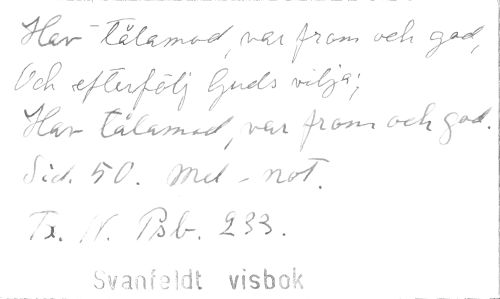 Hav tålamod, var from och god,
Och efterfölj Guds vilja;
Hav tålamod, var from och god.
Sid. 50. Mel-not.
Tx. N. Psb. 233.
Svanfeldt visbok